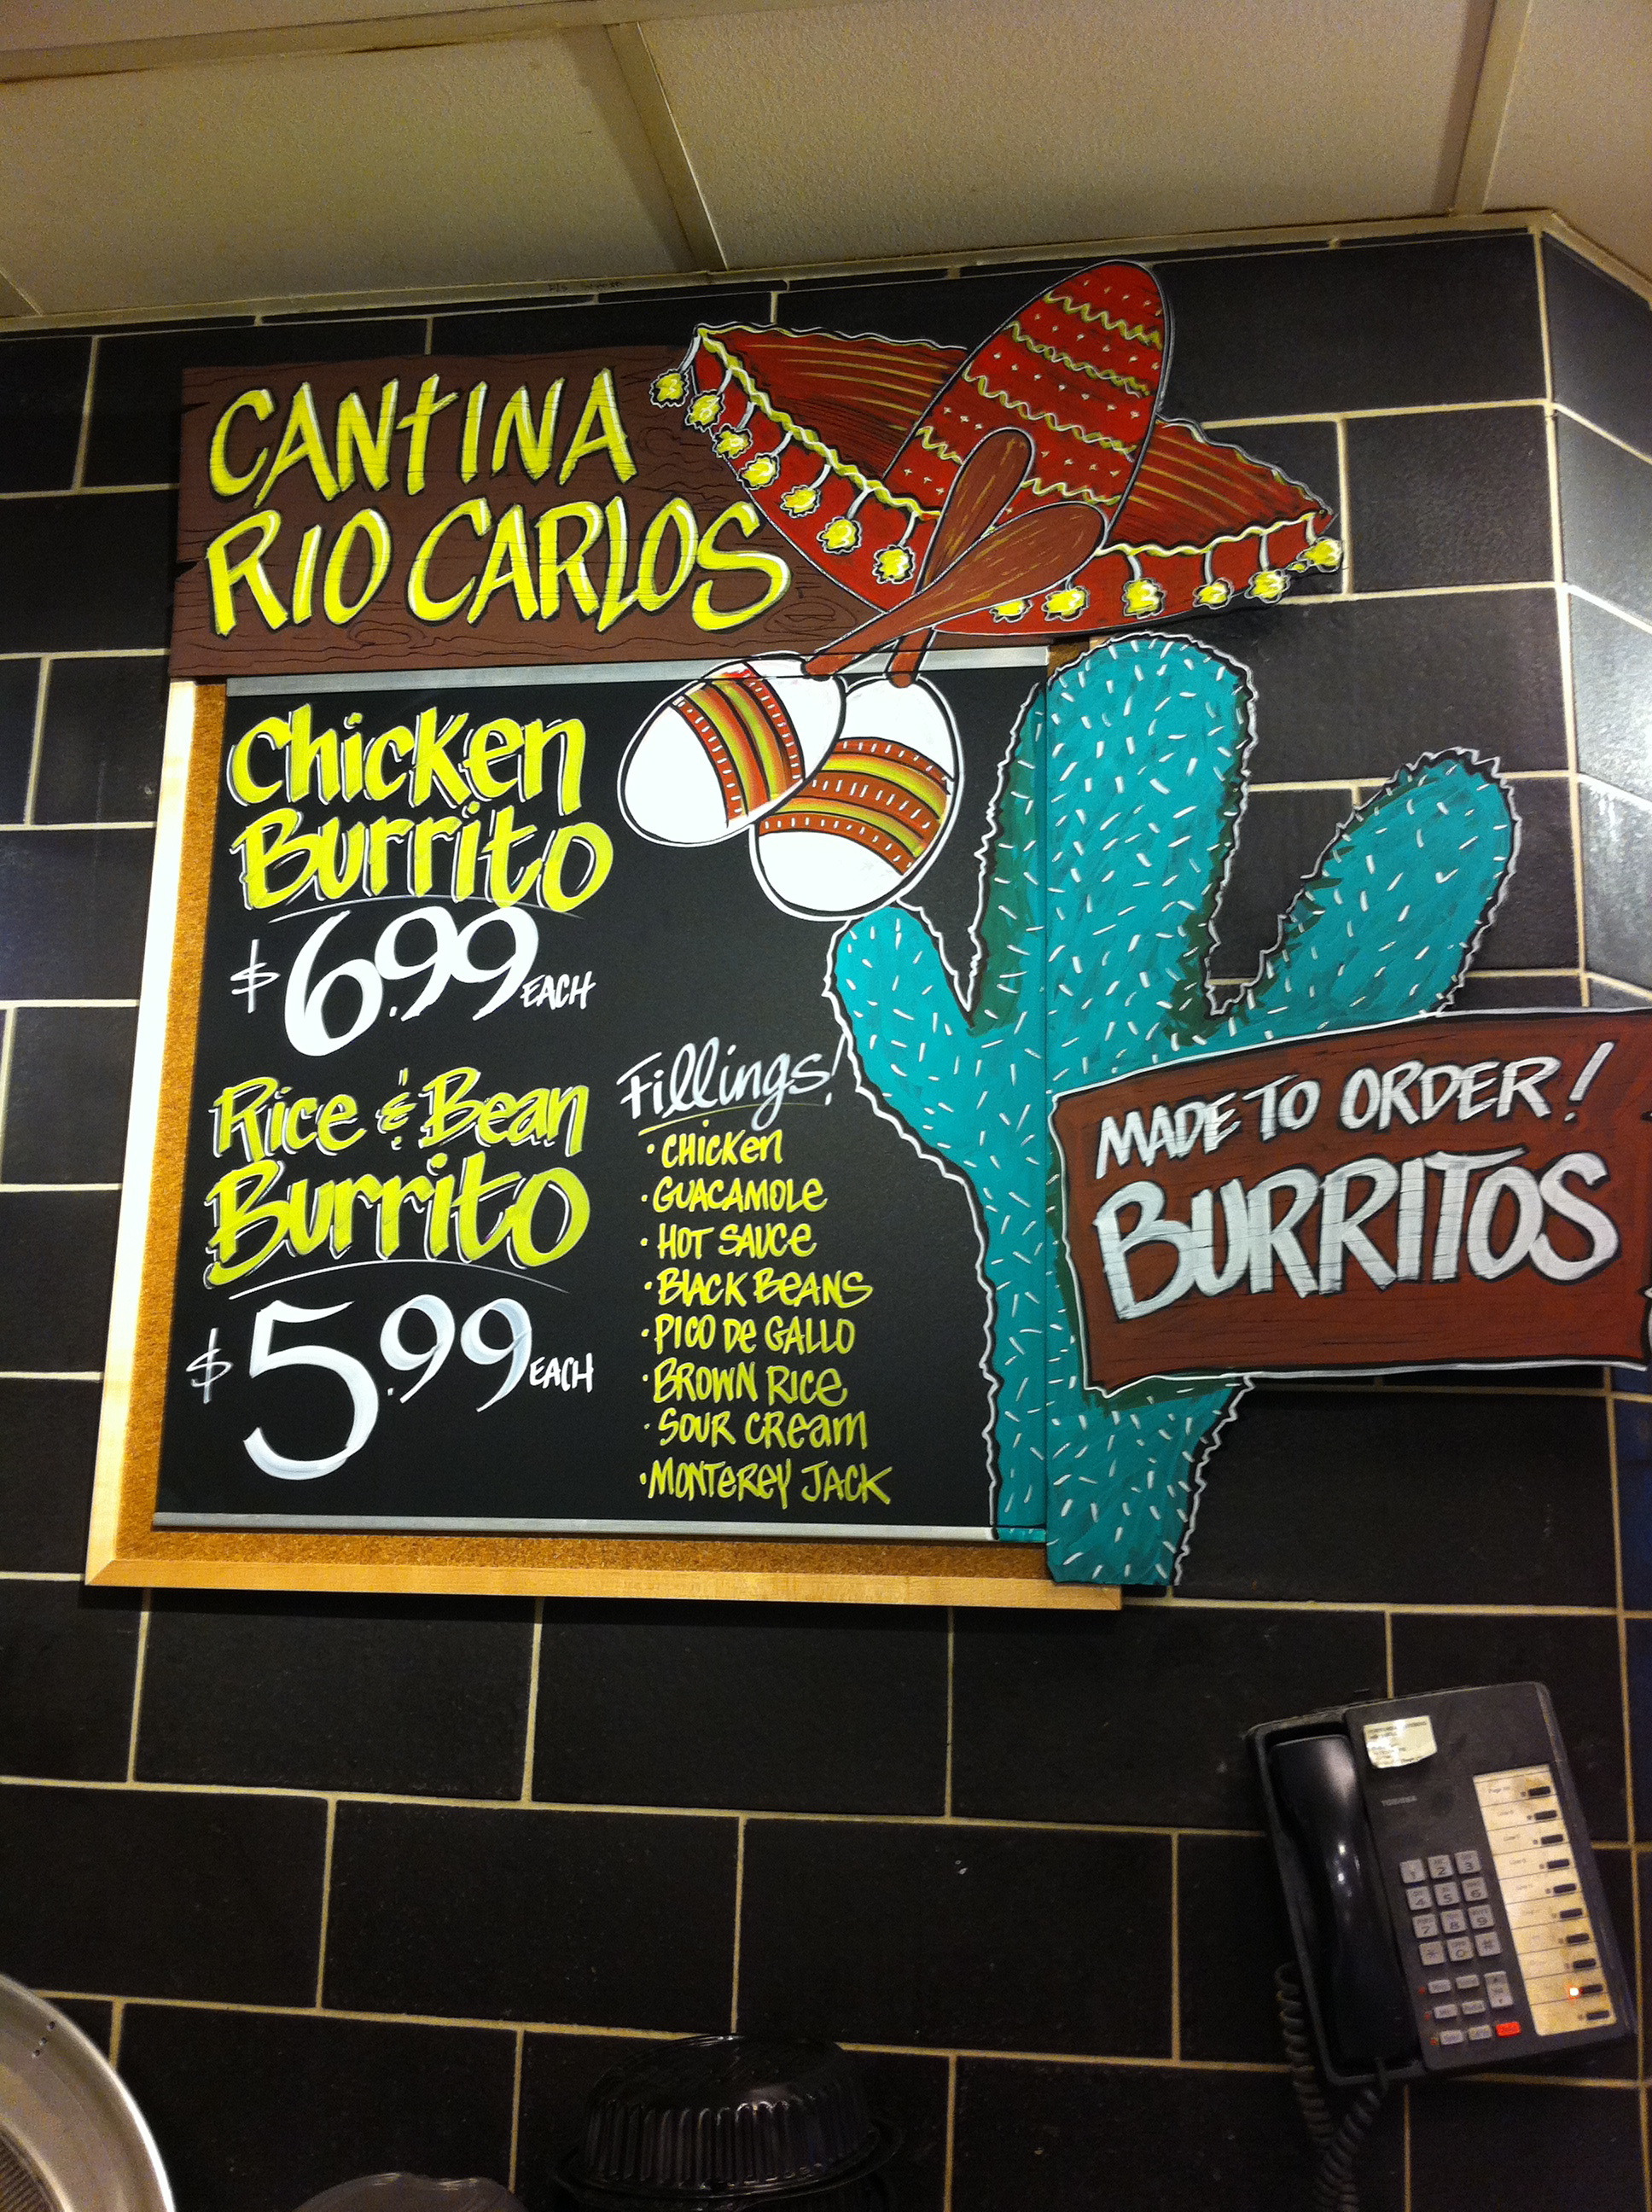 CANTINA
RIO CARLOS
Chicken
Burrito
$6.99 EACH
Rice & Bean
Burrito
$5.99 EACH
Fillings!
• CHICKEN
• GUACAMOLE
• HOT SAUCE
• BLACK BEANS
• PICO DE GALLO
• BROWN RICE
• SOUR CREAM
• MONTEREY JACK
MADE TO ORDER!
BURRITOS
TOSHIBA
1 2 3
4 5 6
7 8 9
* 0 #